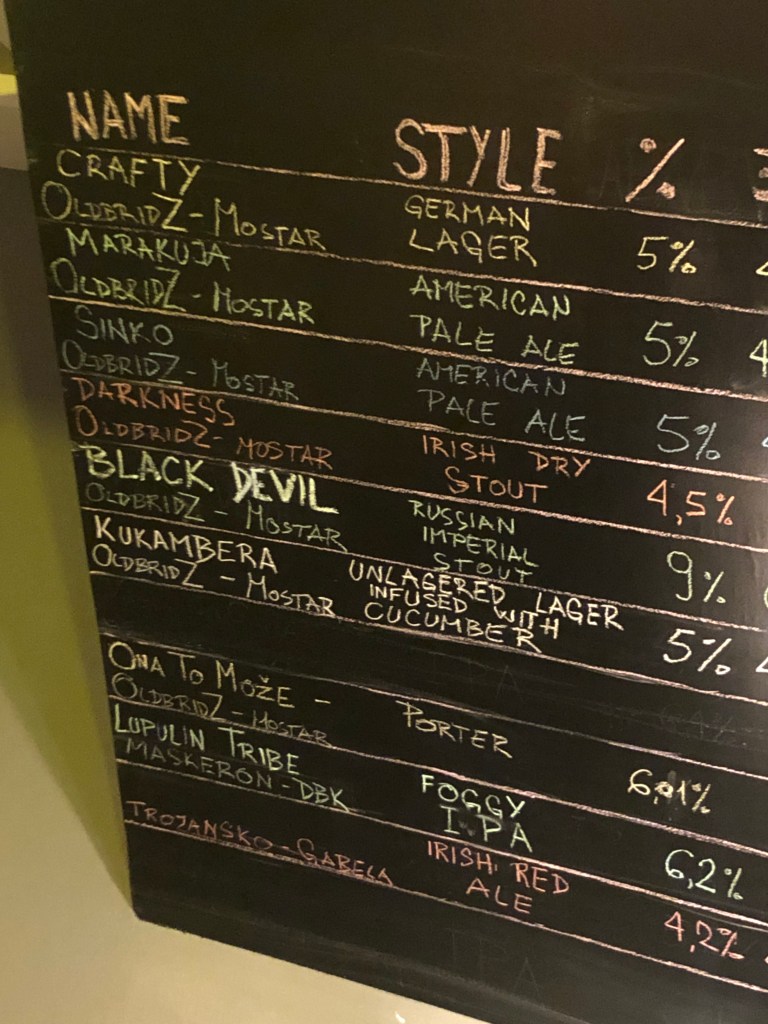 NAME STYLE %
CRAFTY
OLDBRIDZ - MOSTAR
GERMAN
LAGER
5%
MARAKUJA
OLDBRIDZ - MOSTAR
AMERICAN
PALE ALE
5%
4
SINKO
OLDBRIDZ - MOSTAR
AMERICAN
PALE ALE
5%
DARKNESS
OLDBRIDZ - MOSTAR
IRISH DRY
STOUT
4,5%
BLACK DEVIL
OLDBRIDZ - MOSTAR
RUSSIAN
IMPERIAL
STOUT
9%
KUKAMBERA
OLDBRIDZ - MOSTAR
UNLAGERED LAGER
INFUSED WITH
CUCUMBER
5%
ONA TO MOŽE -
OLDBRIDZ - MOSTAR
PORTER
6,1%
LUPULIN TRIBE
MASKERON - DBK
FOGGY
IPA
6,2%
TROJANSKO - GABELA
IRISH RED
ALE
4,2%